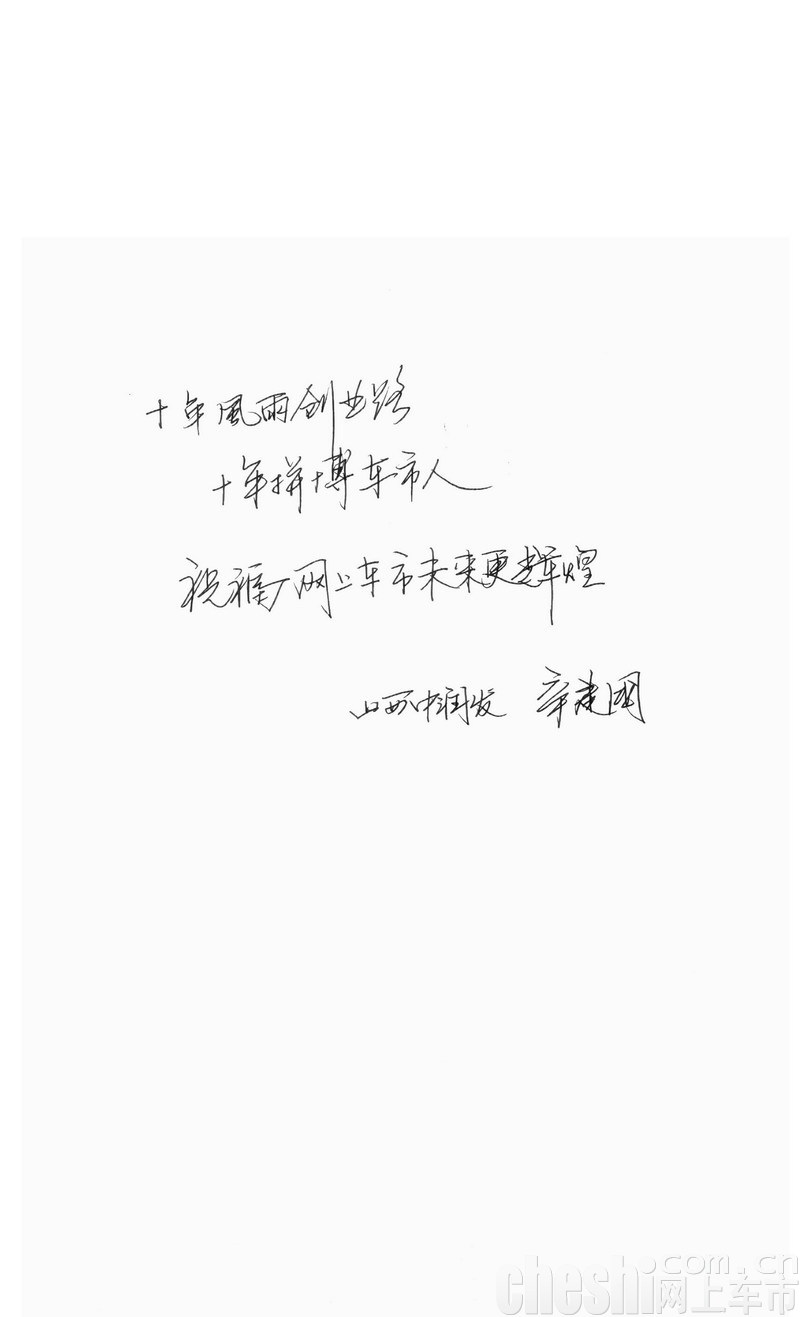 十年風雨创业路
十年拼博车市人
祝福网上车市未来更辉煌
山西中润发 辛建国
cheshi.com.cn
网上车市